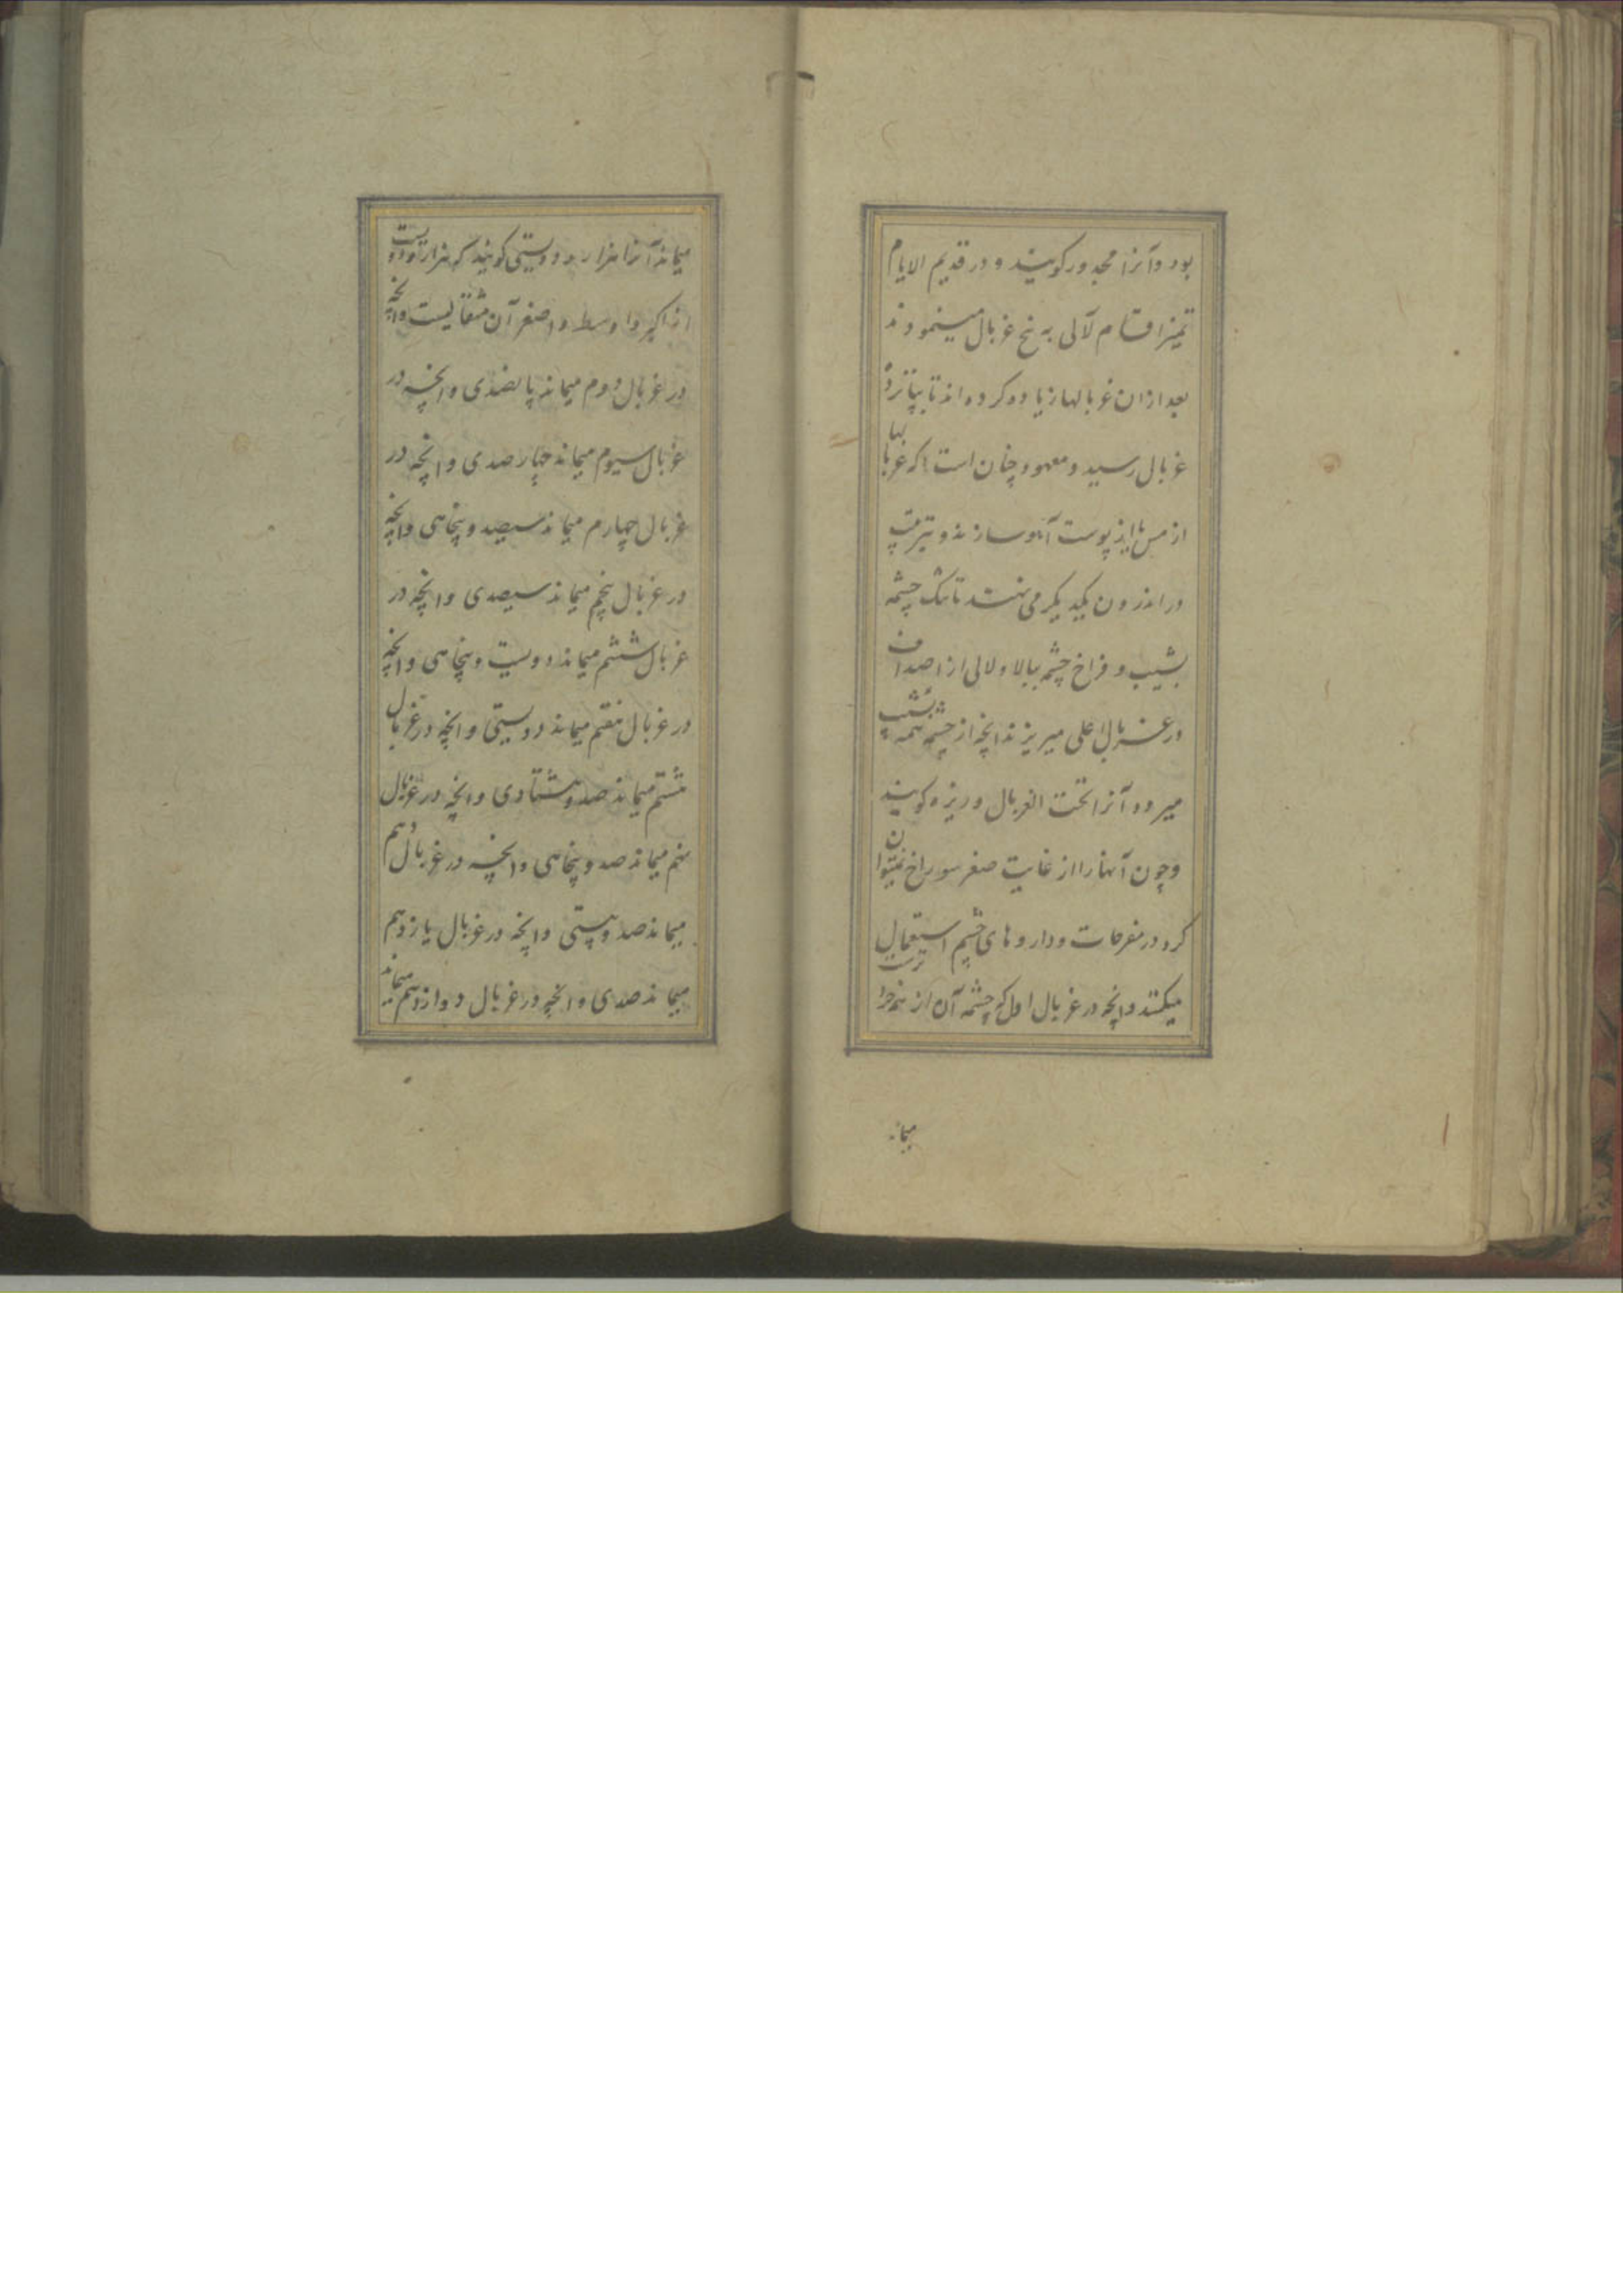 بود و آنرا مجدور کویند و در قدیم الایام
تمیز اقسام لآلی به پنج غربال مینمودند
بعد ازان غربالها زیاده کرده اند تا بپانزده
غربال رسید و معهود چنان است که غربالها
از مس یا از پوست آهو سازند و بترتیب
در اندرون یکدیکر می نهند تا تنک چشمه
بشیب و فراخ چشمه ببالا و لالی از اصداف
در غربال اعلی میریزند انچه از چشمه همه بشیب
میرود آنرا تحت الغربال و ریزه کویند
و چون آنها را از غایت صغر سوراخ نمیتوان
کرد در مفرحات و داروهای چشم استعمال
میکنند و انچه در غربال اول که چشمه آن از همه فراخ ترست
میماند
میماند آنرا هزار و دویستی کویند که هزار و دویست
از اکبر و اوسط و اصغر آن مثقالیست و انچه
در غربال دوم میماند پانصدی و انچه در
غربال سیوم میماند چهارصدی و انچه در
غربال چهارم میماند سیصد و پنجاهی و انچه
در غربال پنجم میماند سیصدی و انچه در
غربال ششم میماند دویست و پنجاهی و انچه
در غربال هفتم میماند دویستی و انچه در غربال
هشتم میماند صد و هشتادی و انچه در غربال
نهم میماند صد و پنجاهی و انچه در غربال دهم
میماند صد و بیستی و انچه در غربال یازدهم
میماند صدی و انچه در غربال دوازدهم میماند